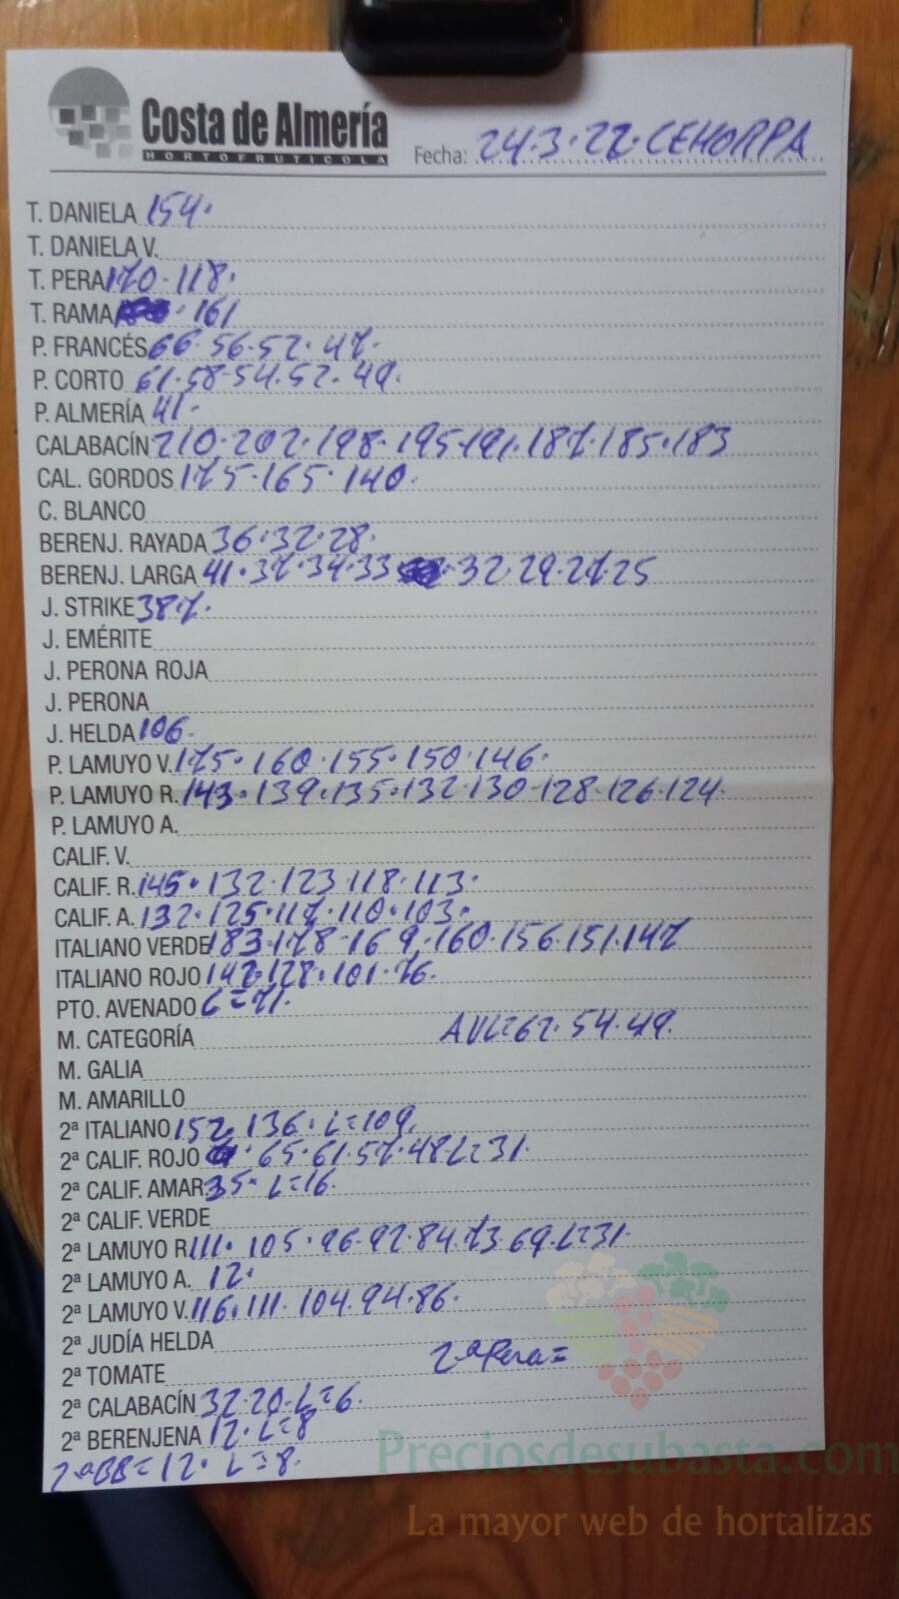 Costa de Almería
HORTOFRUTICOLA
Fecha: 24.3.22.CEHORPA
T. DANIELA 154.
T. DANIELA V.
T. PERA 170.118.
T. RAMA . 161
P. FRANCÉS 66.56.52.47.
P. CORTO 61.58.54.52.49.
P. ALMERÍA 41.
CALABACÍN 210.202.198.195.191.187.185.183
CAL. GORDOS 175.165.140.
C. BLANCO
BERENJ. RAYADA 36.32.28.
BERENJ. LARGA 41.37.34.33 .32.29.27.25
J. STRIKE 387.
J. EMÉRITE
J. PERONA ROJA
J. PERONA
J. HELDA 106.
P. LAMUYO V. 175.160.155.150.146.
P. LAMUYO R. 143.139.135.132.130.128.126.124.
P. LAMUYO A.
CALIF. V.
CALIF. R. 145.132.123.118.113.
CALIF. A. 132.125.117.110.103.
ITALIANO VERDE 183.178.169.160.156.151.147
ITALIANO ROJO 147.128.101.76.
PTO. AVENADO L=71.
M. CATEGORÍA AVL=62.54.49.
M. GALIA
M. AMARILLO
2ª ITALIANO 152.136.L=109.
2ª CALIF. ROJO .65.61.57.48.L=31.
2ª CALIF. AMAR. 35.L=16.
2ª CALIF. VERDE
2ª LAMUYO R. 111.105.96.92.84.73.69.L=31.
2ª LAMUYO A. 12.
2ª LAMUYO V. 116.111.104.94.86.
2ª JUDÍA HELDA
2ª TOMATE 2ª Pera=
2ª CALABACÍN 32.20.L=6.
2ª BERENJENA 12.L=8
2ªBB=12.L=8.
Preciosdesubasta.com
La mayor web de hortalizas